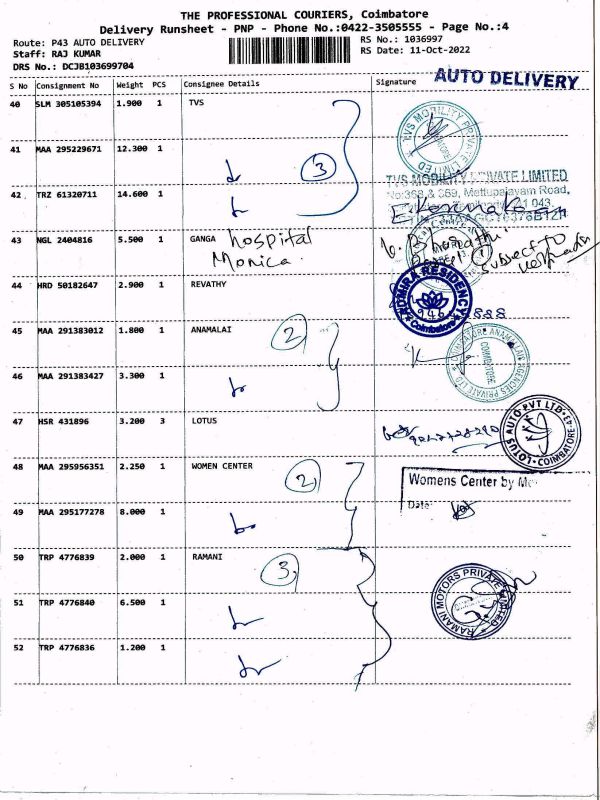 THE PROFESSIONAL COURIERS, Coimbatore
Delivery Runsheet - PNP - Phone No.:0422-3505555 - Page No.:4
Route: P43 AUTO DELIVERY
Staff: RAJ KUMAR
DRS No.: DCJB103699704
RS No.: 1036997
RS Date: 11-Oct-2022
S No Consignment No Weight PCS Consignee Details Signature AUTO DELIVERY
40 SLM 305105394 1.900 1 TVS
TVS MOBILITY PRIVATE
41 MAA 295229671 12.300 1 3
TVS MOBILITY PRIVATE LIMITED
Mettupalayam Road,
42 TRZ 61320711 14.600 1
43 NGL 2404816 5.500 1 GANGA hospital
Monica.
Subject to
44 HRD 50182647 2.900 1 REVATHY
ADMIRA RESIDENCY
Coimbatore
45 MAA 291383012 1.800 1 ANAMALAI 2
COIMBATORE ANAMALAIS AGENCIES PRIVATE LTD
COIMBATORE
46 MAA 291383427 3.300 1
47 HSR 431896 3.200 3 LOTUS
LOTUS AUTO PVT LTD
COIMBATORE-43
48 MAA 295956351 2.250 1 WOMEN CENTER 2
Womens Center by
Date
49 MAA 295177278 8.000 1
50 TRP 4776839 2.000 1 RAMANI 3
RAMANI MOTORS PRIVATE LIMITED
51 TRP 4776840 6.500 1
52 TRP 4776836 1.200 1